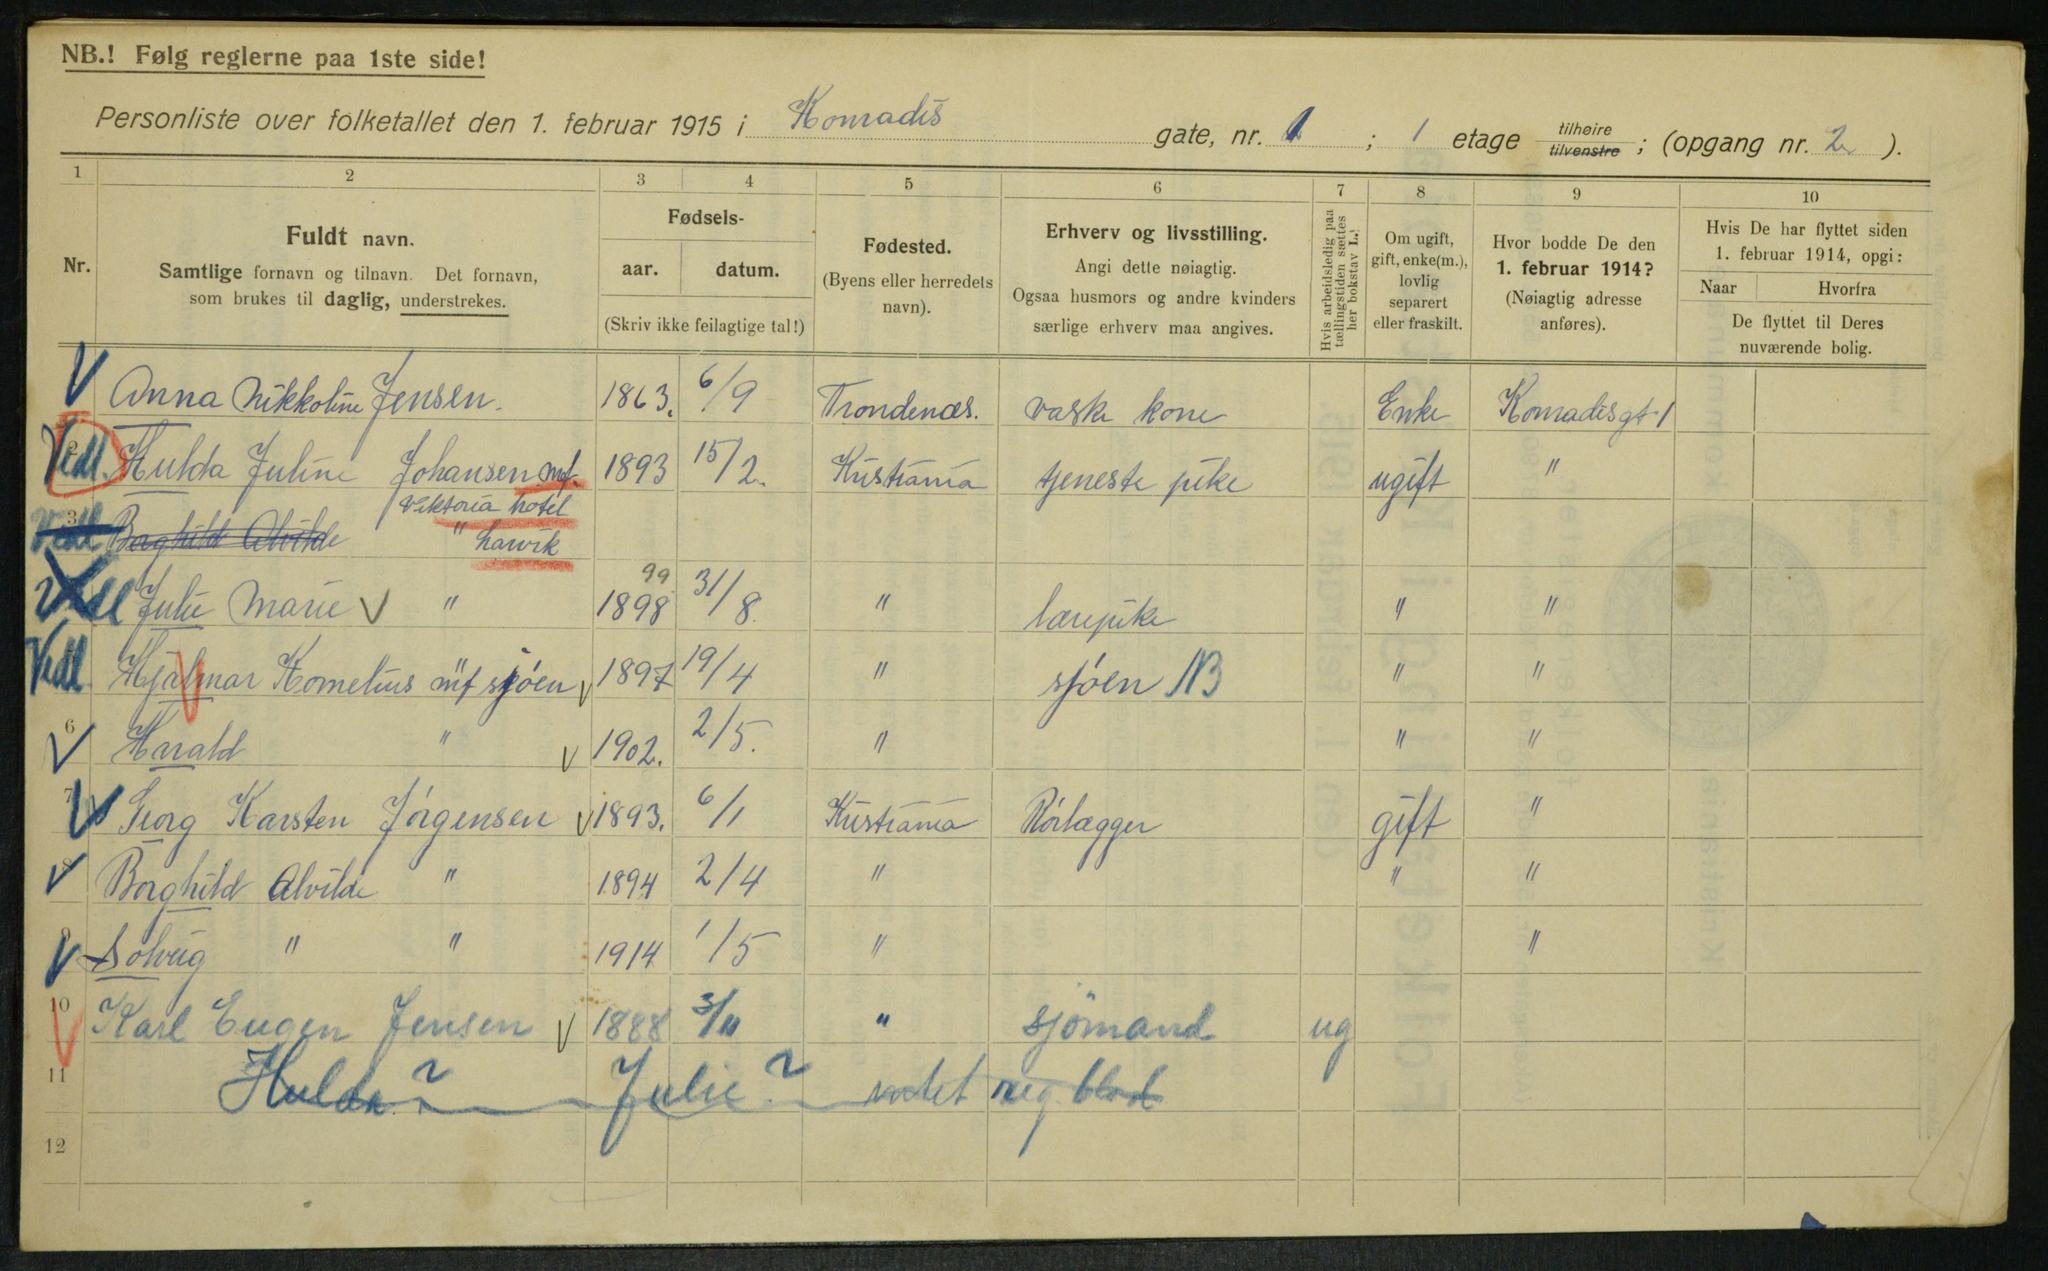 NB.! Følg reglerne paa 1ste side!
Personliste over folketallet den 1. februar 1915 i Konradis gate, nr. 1 ; 1 etage tilhøire tilvenstre ; (opgang nr. 2 ).
1 2 3 4 5 6 7 8 9 10
Nr.
Fuldt navn.
Samtlige fornavn og tilnavn. Det fornavn,
som brukes til daglig, understrekes.
Fødsels-
aar. datum.
(Skriv ikke feilagtige tal!)
Fødested.
(Byens eller herredets
navn).
Erhverv og livsstilling.
Angi dette nøiagtig.
Ogsaa husmors og andre kvinders
særlige erhverv maa angives.
Hvis arbeidsledig paa
tællingstiden sættes
her bokstav L.!
Om ugift,
gift, enke(m.),
lovlig
separert
eller fraskilt.
Hvor bodde De den
1. februar 1914?
(Nøiagtig adresse
anføres).
Hvis De har flyttet siden
1. februar 1914, opgi:
Naar Hvorfra
De flyttet til Deres
nuværende bolig.
Anna Nikkoline Jensen. 1863. 6/9 Trondenæs. vaske kone Enke Konradisgt 1
2 Vedl. Hulda Juline Johansen mf. 1893 15/2. Kristiania tjeneste pike ugift "
Viktoria hotel
3 Vedl Borghild Alvilde " Larvik
99
Vedl Julie Marie " 1898 31/8 " lærepike " "
Vedl. Hjalmar Kornelius mf sjöen 1897 19/4 " sjöen NB " "
6 Harald " 1902. 2/5. " " "
7 Georg Karsten Jörgensen 1893. 6/1 Kristiania Rörlægger gift "
8 Borghild Alvilde " 1894 2/4 " " "
9 Solveig " " 1914 1/5 " "
10 Karl Eugen Jensen 1888 3/11 " sjömand ug
11 Hulda? Julie? reg. blad
12